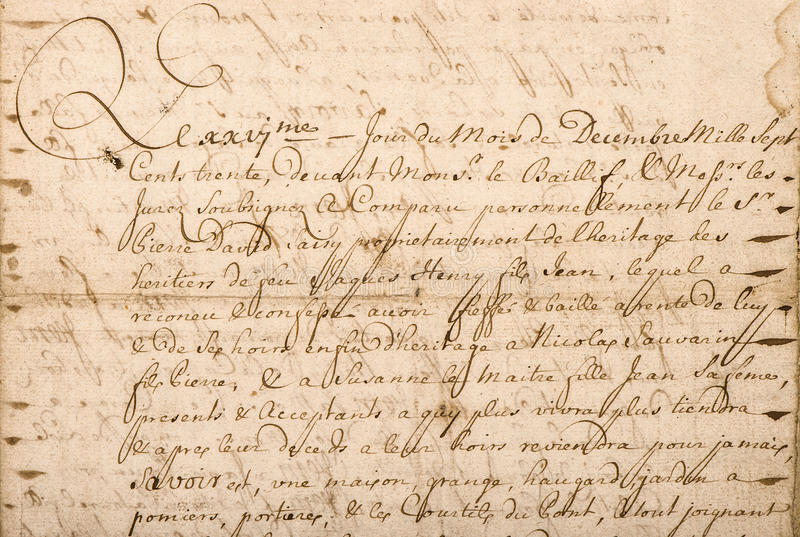 Le xxvj.me Jour du Mois de Decembre Mille Sept
Cents trente, devant Mons.r le Baillif, & Mess.rs les
Jurez Soubsignez A Comparu personnellement le S.r
Pierre David proprietairement de lheritage des
heritiers de feu Jaques Henry fils Jean, lequel a
reconeu & confessé avoir fieffé & baillé a rente de luy
& de Ses hoirs enfin dheritage a Nicolas Sauvarin
fils Pierre, & a Susanne le Maitre fille Jean Sa feme,
presents & Acceptants a quy plus vivra plus tiendra
& apres leur deceds a leur hoirs reviendra pour jamais,
Savoir est, vne maison, grange, haugard, jardin a
pomiers, portieres, & les Courtils du Pont, le tout joignant